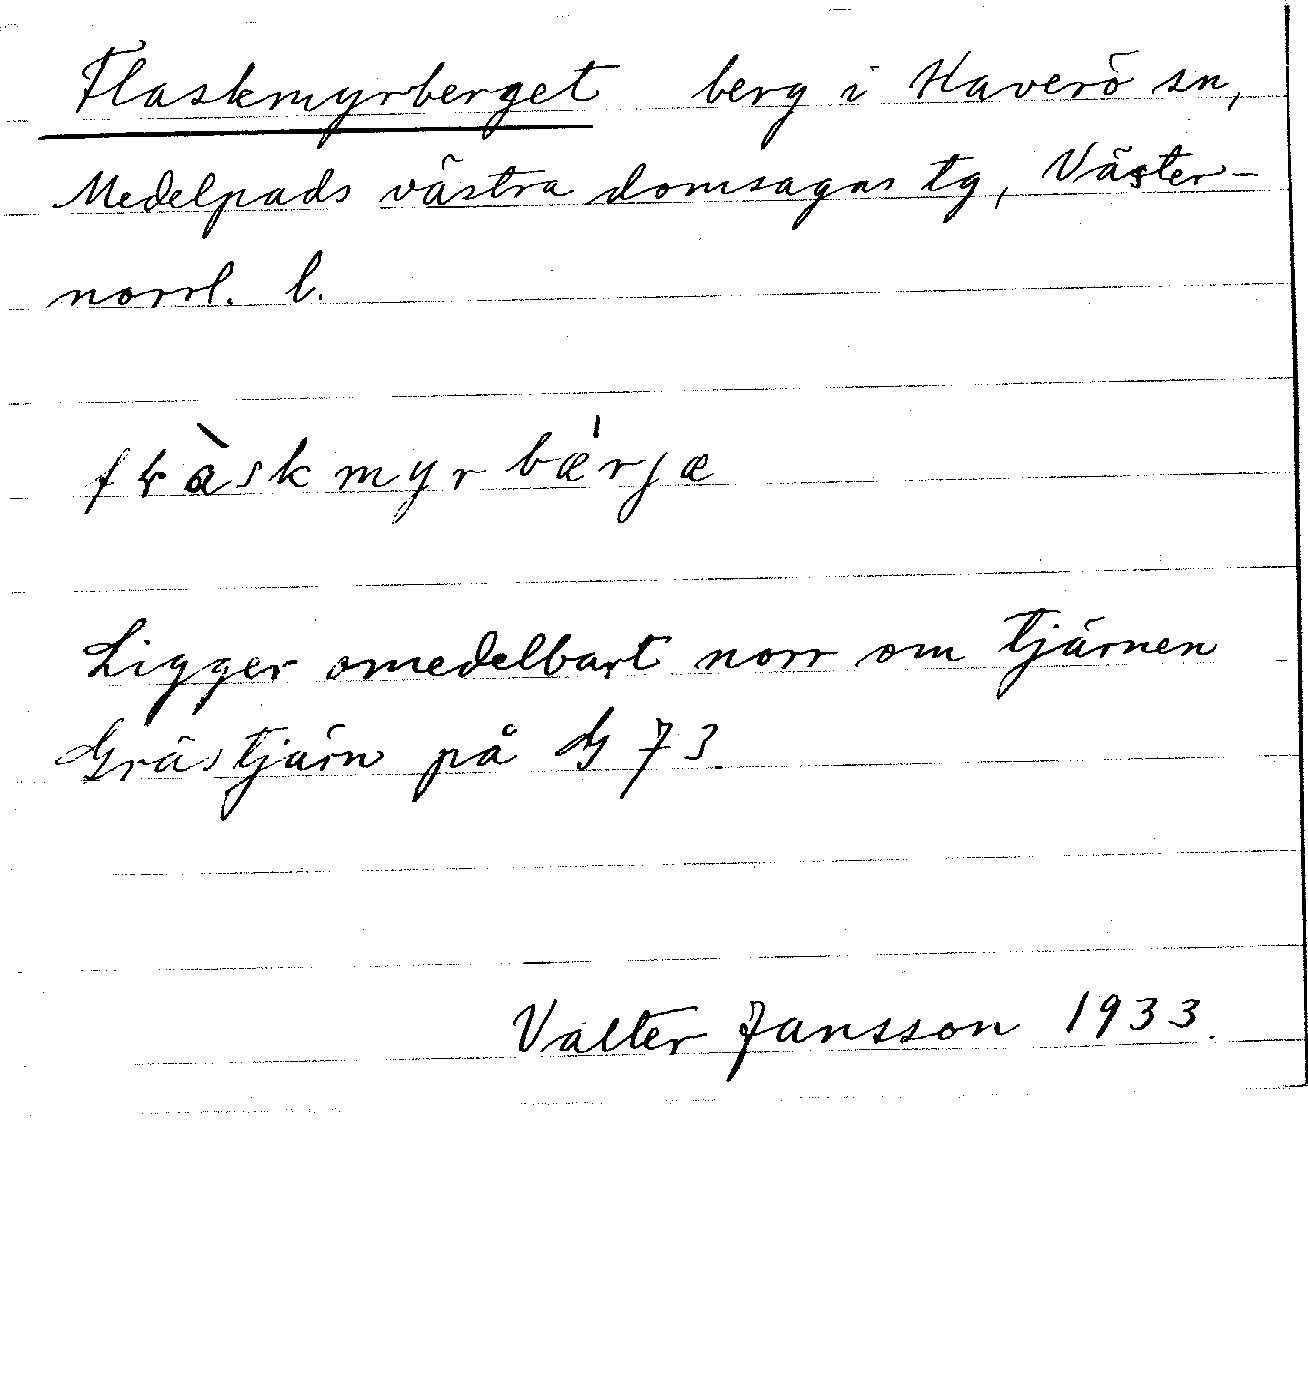 Flaskmyrberget berg i Haverö sn,
Medelpads västra domsagas tg, Väster-
norrl. l.
fɽàskmyrbǽrjæ
Ligger omedelbart norr om tjärnen
Grästjärn på G 73.
Valter Jansson 1933.